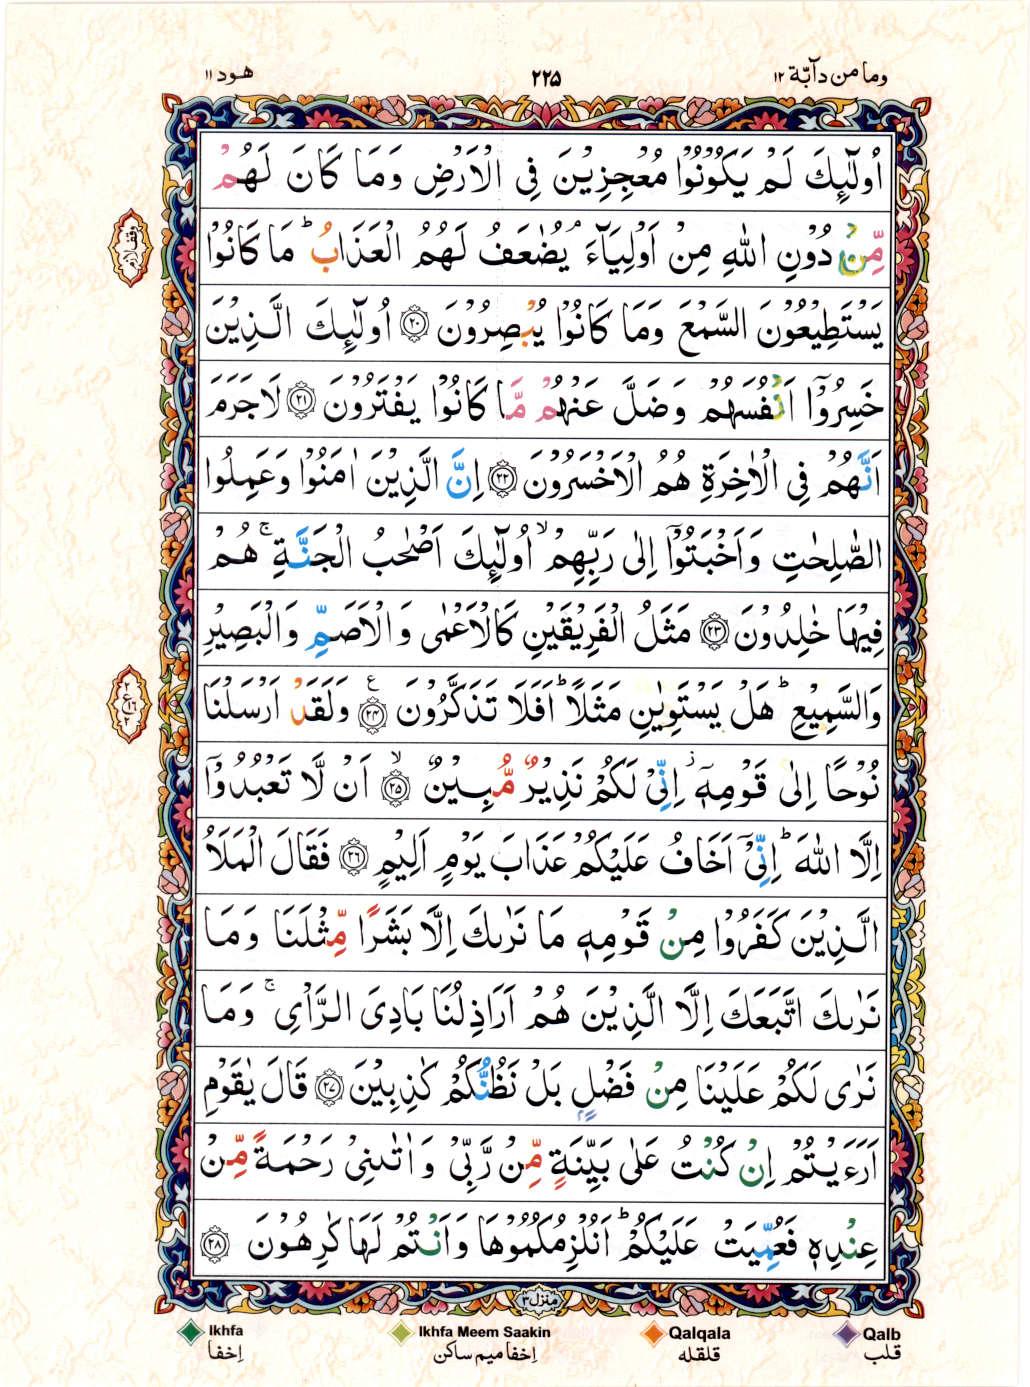 وما من دآبّة ١٢
٢٢٥
هود ١١
اُولٰٓئِكَ لَمْ يَكُوْنُوْا مُعْجِزِيْنَ فِى الْاَرْضِ وَمَا كَانَ لَهُمْ
مِّنْ دُوْنِ اللّٰهِ مِنْ اَوْلِيَآءَ ۘ يُضٰعَفُ لَهُمُ الْعَذَابُ ؕ مَا كَانُوْا
يَسْتَطِيْعُوْنَ السَّمْعَ وَمَا كَانُوْا يُبْصِرُوْنَ ﴿۲۰﴾ اُولٰٓئِكَ الَّذِيْنَ
خَسِرُوْۤا اَنْفُسَهُمْ وَضَلَّ عَنْهُمْ مَّا كَانُوْا يَفْتَرُوْنَ ﴿۲۱﴾ لَاجَرَمَ
اَنَّهُمْ فِى الْاٰخِرَةِ هُمُ الْاَخْسَرُوْنَ ﴿۲۲﴾ اِنَّ الَّذِيْنَ اٰمَنُوْا وَعَمِلُوا
الصّٰلِحٰتِ وَاَخْبَتُوْۤا اِلٰى رَبِّهِمْ ۙ اُولٰٓئِكَ اَصْحٰبُ الْجَنَّةِ ۚ هُمْ
فِيْهَا خٰلِدُوْنَ ﴿۲۳﴾ مَثَلُ الْفَرِيْقَيْنِ كَالْاَعْمٰى وَالْاَصَمِّ وَالْبَصِيْرِ
وَالسَّمِيْعِ ؕ هَلْ يَسْتَوِيٰنِ مَثَلًا ؕ اَفَلَا تَذَكَّرُوْنَ ﴿۲۴﴾ ع وَلَقَدْ اَرْسَلْنَا
نُوْحًا اِلٰى قَوْمِهٖۤ ز اِنِّىْ لَكُمْ نَذِيْرٌ مُّبِيْنٌ ۙ﴿۲۵﴾ اَنْ لَّا تَعْبُدُوْۤا
اِلَّا اللّٰهَ ؕ اِنِّىْۤ اَخَافُ عَلَيْكُمْ عَذَابَ يَوْمٍ اَلِيْمٍ ﴿۲۶﴾ فَقَالَ الْمَلَاُ
الَّذِيْنَ كَفَرُوْا مِنْ قَوْمِهٖ مَا نَرٰىكَ اِلَّا بَشَرًا مِّثْلَنَا وَمَا
نَرٰىكَ اتَّبَعَكَ اِلَّا الَّذِيْنَ هُمْ اَرَاذِلُنَا بَادِىَ الرَّاْىِ ۚ وَمَا
نَرٰى لَكُمْ عَلَيْنَا مِنْ فَضْلٍۭ بَلْ نَظُنُّكُمْ كٰذِبِيْنَ ﴿۲۷﴾ قَالَ يٰقَوْمِ
اَرَءَيْتُمْ اِنْ كُنْتُ عَلٰى بَيِّنَةٍ مِّنْ رَّبِّىْ وَاٰتٰىنِىْ رَحْمَةً مِّنْ
عِنْدِهٖ فَعُمِّيَتْ عَلَيْكُمْ ؕ اَنُلْزِمُكُمُوْهَا وَاَنْتُمْ لَهَا كٰرِهُوْنَ ﴿۲۸﴾
وقف لازم
٢ ع ١٦ ٢
منزل ٣
Ikhfa
Ikhfa Meem Saakin
Qalqala
Qalb
اِخفا
اِخفا میم ساکن
قلقله
قلب